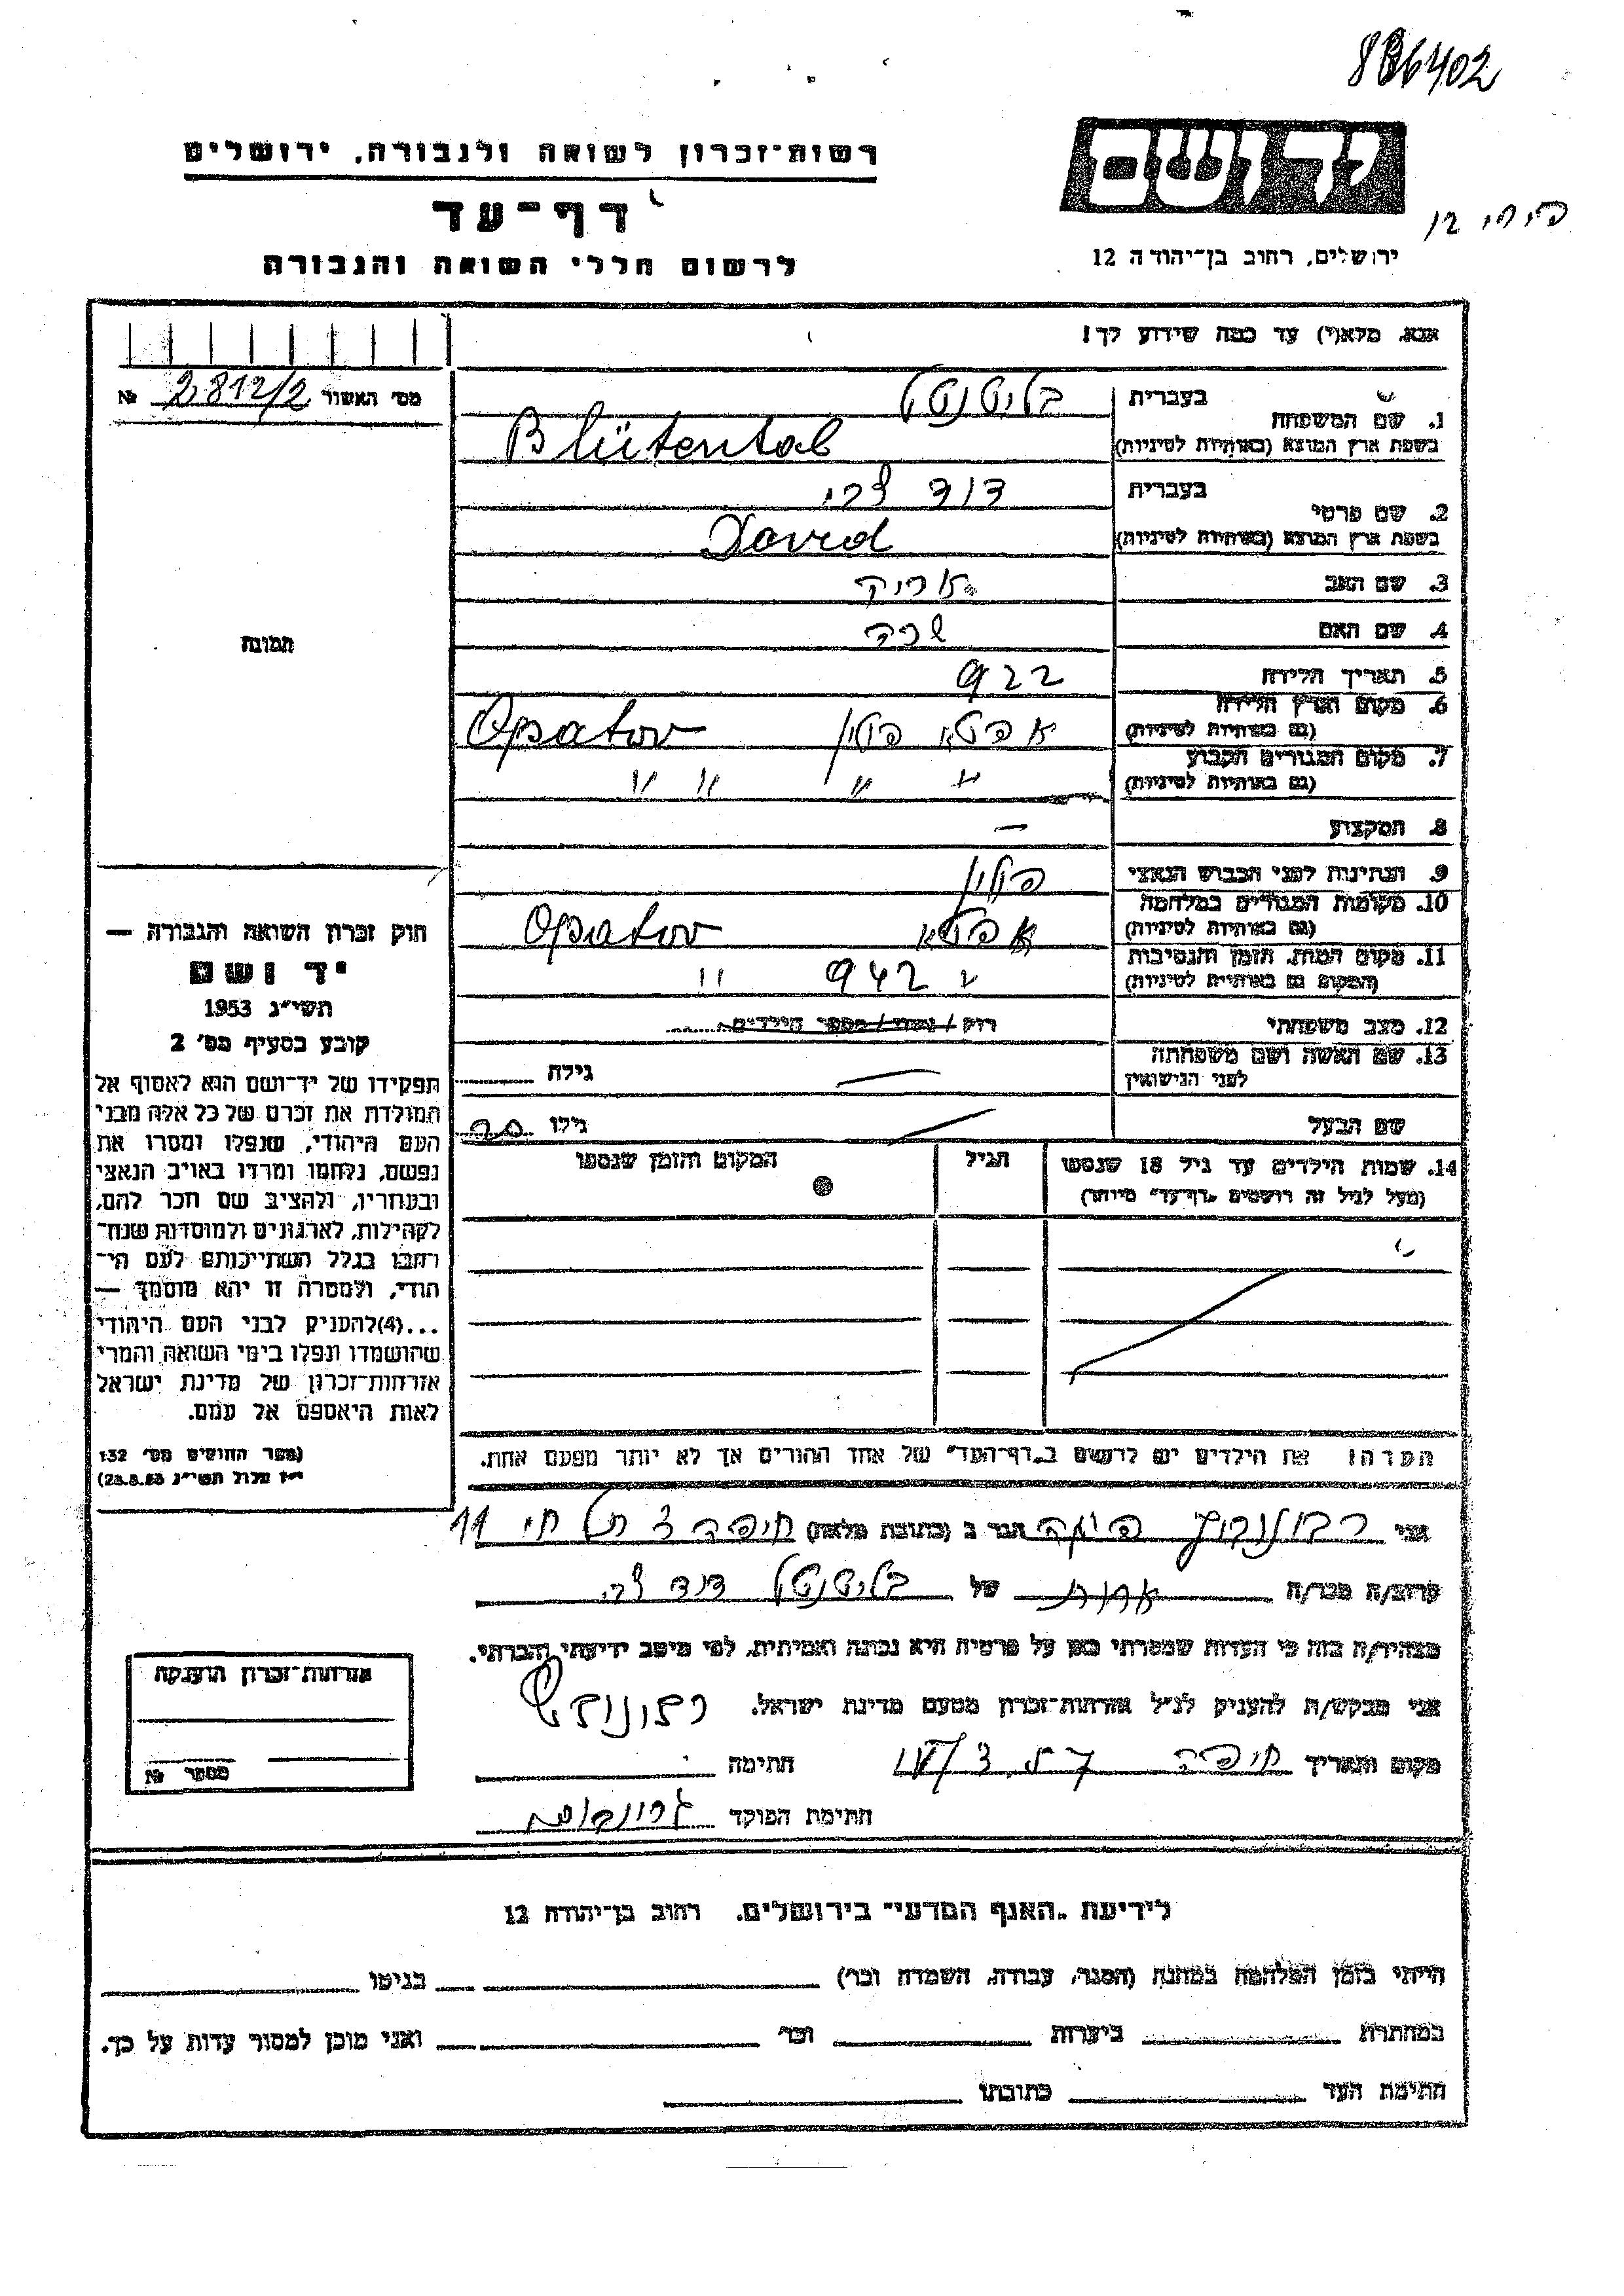 886402
רשות־זכרון לשואה ולגבורה, ירושלים
דף־עד
לרשום חללי השואה והגבורה
ידושם
ירושלים, רחוב בן־יהודה 12
אנא, מלא(י) עד כמה שידוע לך!
מס׳ האשור № 2812/2
1. שם המשפחה
בעברית בליטנטל
בשפת ארץ המוצא (באותיות לטיניות) Blütental
2. שם פרטי
בעברית דוד צבי
בשפת ארץ המוצא (באותיות לטיניות) David
3. שם האב
4. שם האם שרה
5. תאריך הלידה 922
6. מקום וארץ הלידה (גם באותיות לטיניות) אפטא פולין Opatov
7. מקום המגורים הקבוע (גם באותיות לטיניות) " " " "
8. המקצוע —
9. הנתינות לפני הכבוש הנאצי פולין
10. מקומות המגורים במלחמה (גם באותיות לטיניות) אפטא Opatov
11. מקום המות, הזמן והנסיבות (המקום גם באותיות לטיניות) " 942 "
12. מצב משפחתי רוק / נשוי / מספר הילדים
13. שם האשה ושם משפחתה לפני הנישואין — גילה
שם הבעל — גילו 20
14. שמות הילדים עד גיל 18 שנספו (מעל לגיל זה רושמים „דף־עד” מיוחד)
הגיל
המקום והזמן שנספו
הערה! את הילדים יש לרשום ב„דף־העד” של אחד ההורים אך לא יותר מפעם אחת.
תמונה
חוק זכרון השואה והגבורה —
יד ושם
תשי״ג 1953
קובע בסעיף מס׳ 2
תפקידו של יד־ושם הוא לאסוף אל
המולדת את זכרם של כל אלה מבני
העם היהודי, שנפלו ומסרו את
נפשם, נלחמו ומרדו באויב הנאצי
ובעוזריו, ולהציב שם וזכר להם,
לקהילות, לארגונים ולמוסדות שנח־
רבו בגלל השתייכותם לעם הי־
הודי, ולמטרה זו יהא מוסמך —
...(4)להעניק לבני העם היהודי
שהושמדו ונפלו בימי השואה והמרי
אזרחות־זכרון של מדינת ישראל
לאות היאספם אל עמם.
(ספר החוקים מס׳ 132
י״ז אלול תשי״ג 28.8.53)
אני הגר ב (כתובת מלאה) חיפה תל חי 11
קרוב/ה מכר/ה אחות של בליטנטל דוד צבי
מצהיר/ה בזה כי העדות שמסרתי כאן על פרטיה היא נכונה ואמיתית, לפי מיטב ידיעתי והכרתי.
אני מבקש/ת להעניק לנ״ל אזרחות־זכרון מטעם מדינת ישראל.
מקום ותאריך חיפה חתימה
חתימת הפוקד
אזרחות־זכרון הוענקה
מספר №
לידיעת „האגף המדעי” בירושלים, רחוב בן־יהודה 12
הייתי בזמן המלחמה במחנה (הסגר, עבודה, השמדה וכו׳) בגיטו
במחתרת ביערות וכו׳ ואני מוכן למסור עדות על כך.
חתימת העד כתובתו